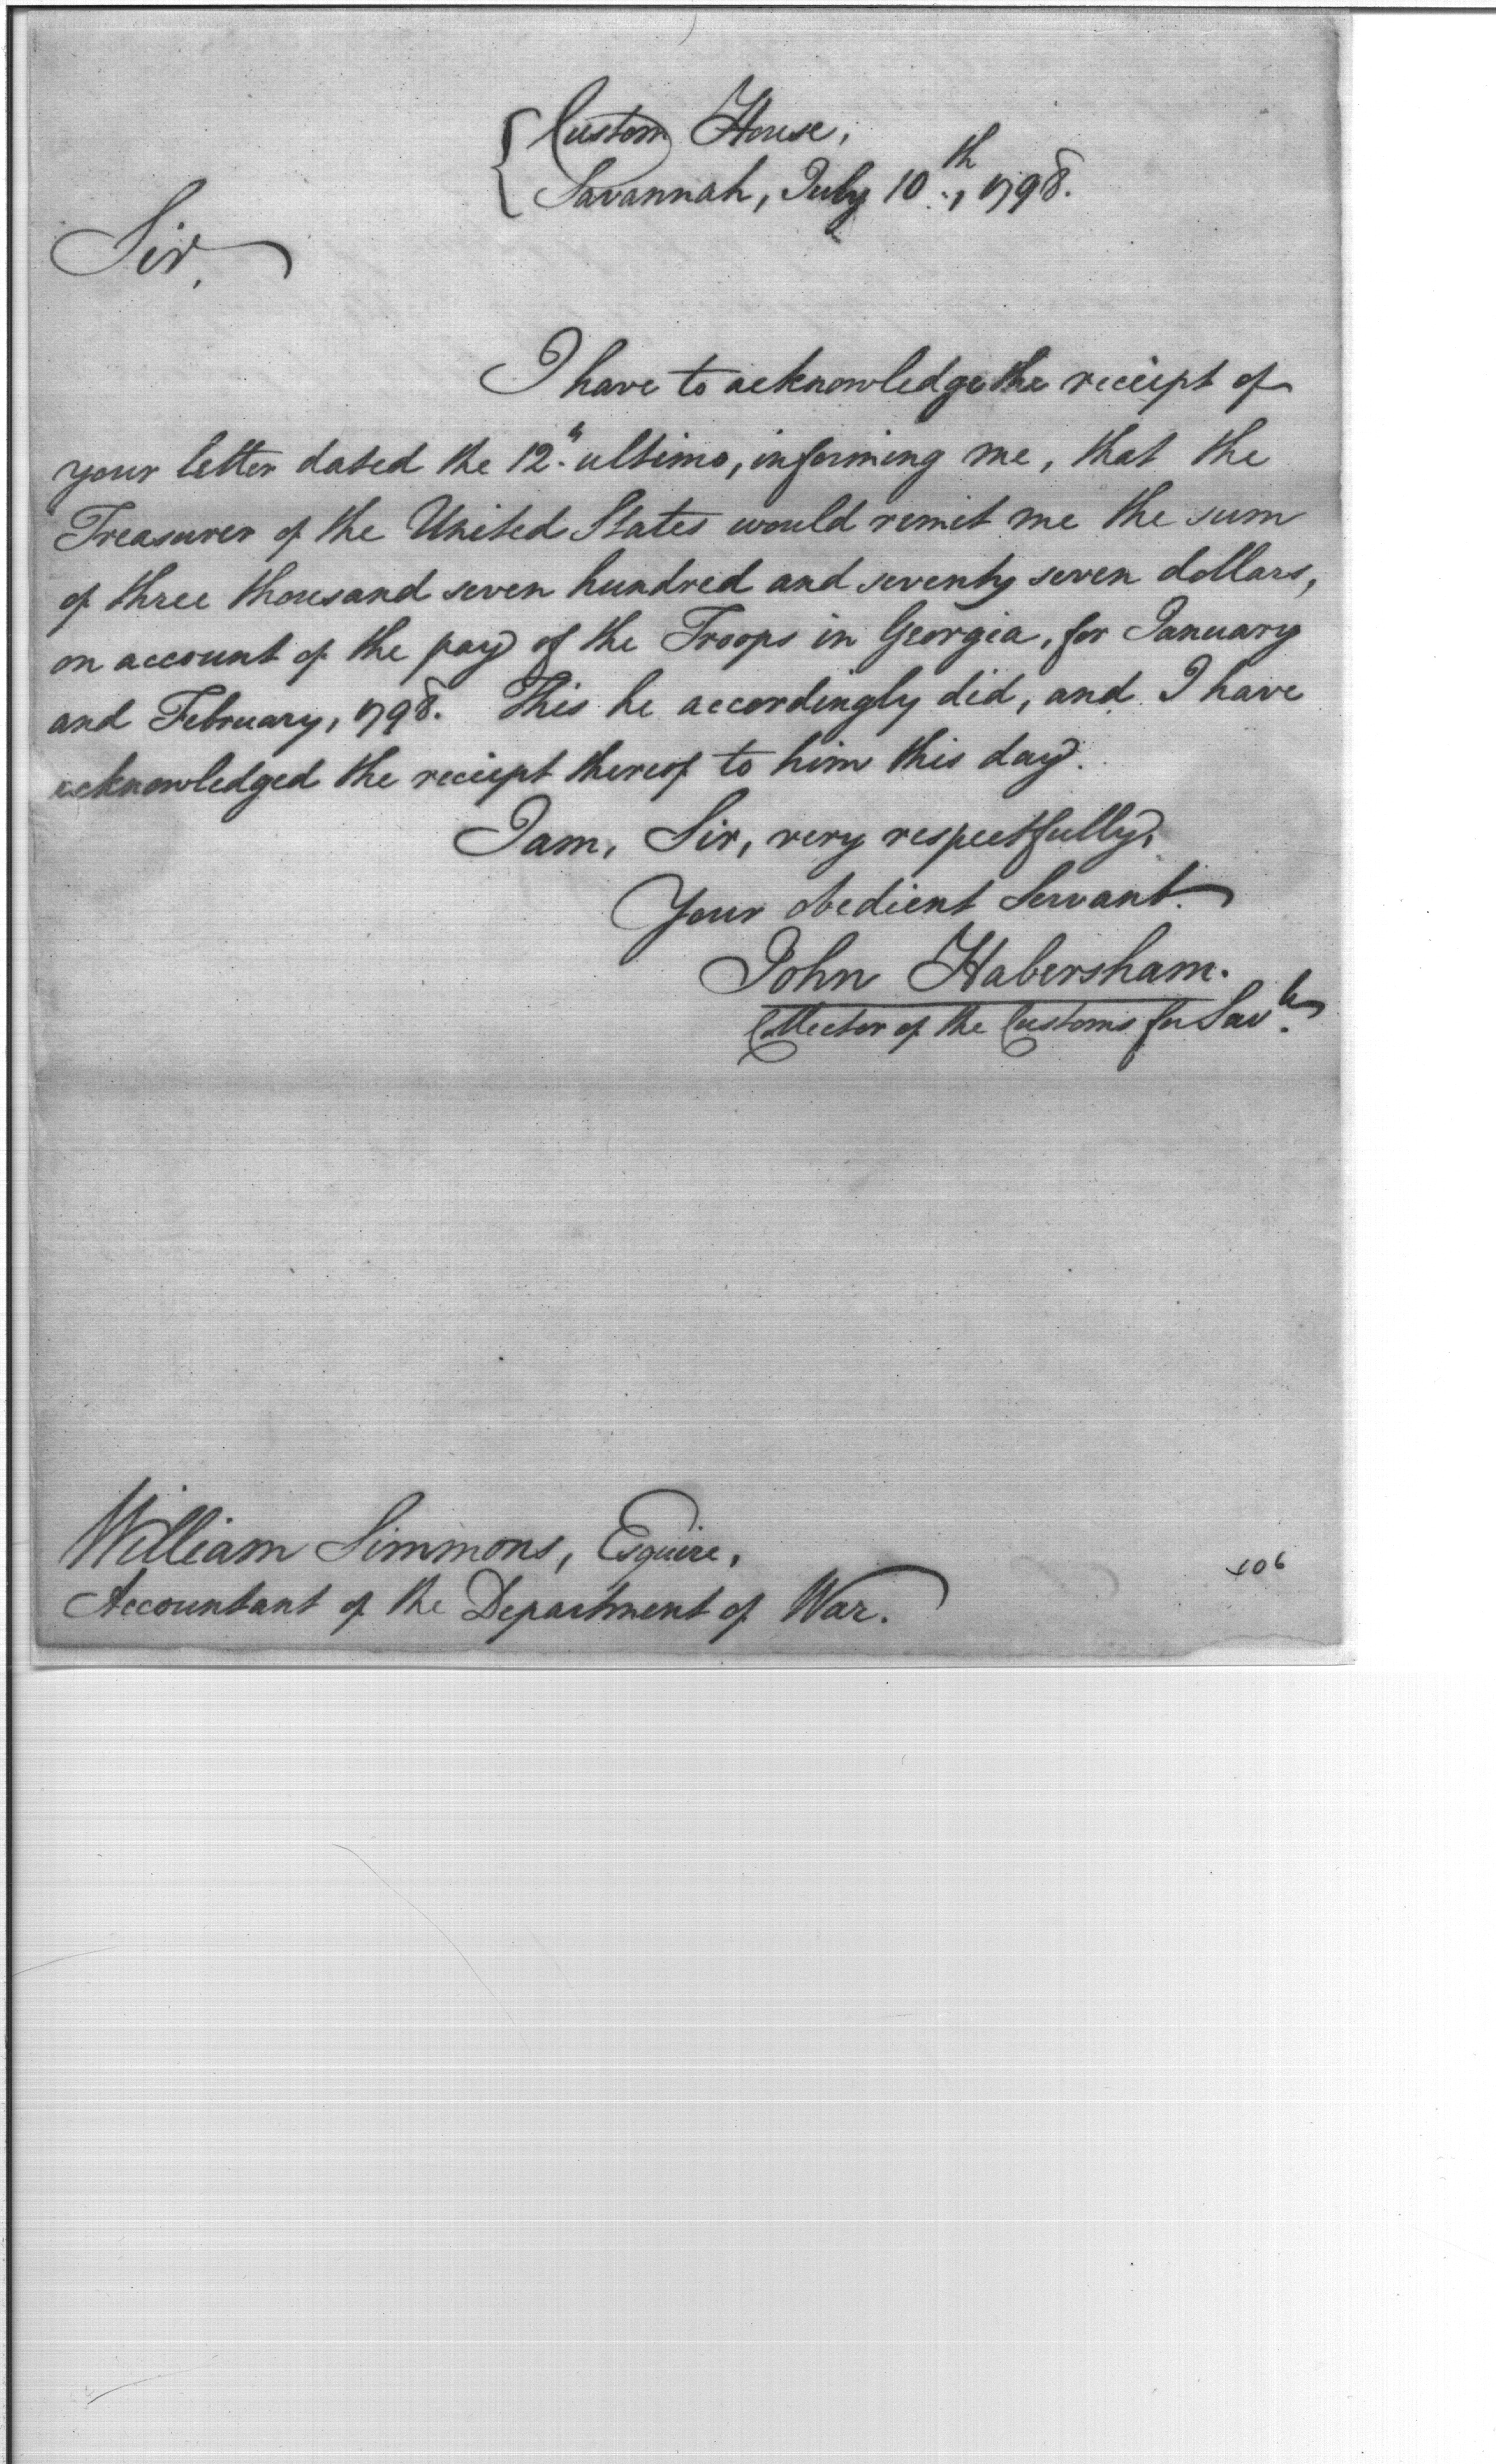 Custom House,
Savannah, July 10th, 1798.
Sir,
I have to acknowledge the receipt of
your letter dated the 12th ultimo, informing me, that the
Treasurer of the United States would remit me the sum
of three thousand seven hundred and seventy seven dollars,
on account of the pay of the Troops in Georgia, for January
and February, 1798. This he accordingly did, and I have
acknowledged the receipt thereof to him this day.
I am, Sir, very respectfully,
Your obedient Servant.
John Habersham.
Collector of the Customs for Savh.
William Simmons, Esquire,
Accountant of the Department of War.